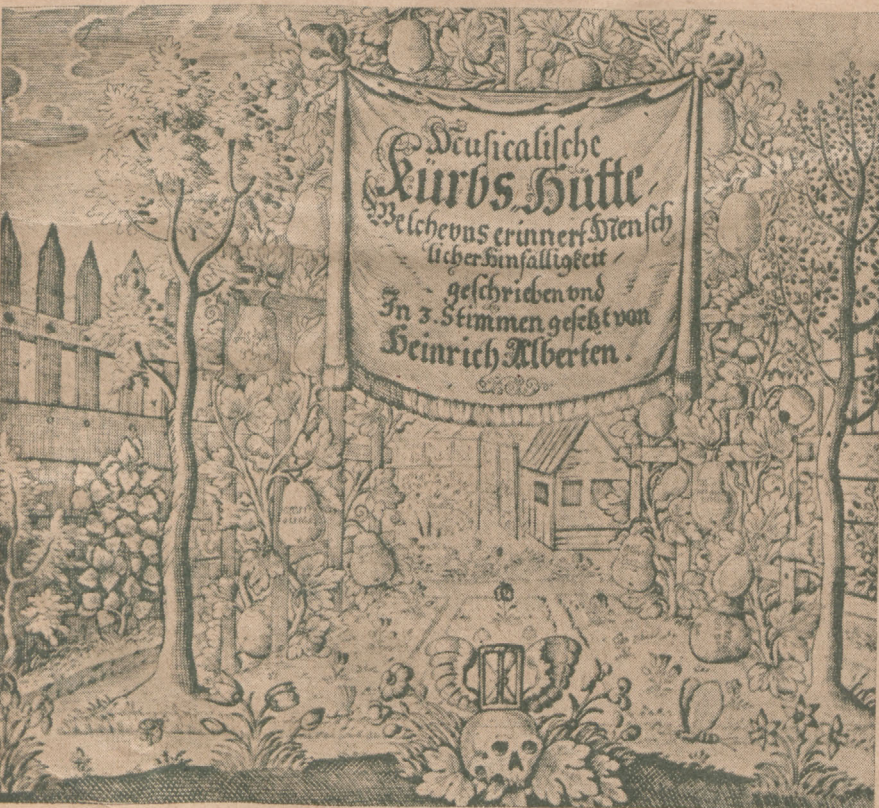 Musicalische
Kürbs Hütte,
Welche vns erinnert Mensch
licher Hinfälligkeit /
geschrieben vnd
In 3. Stimmen gesetzt von
Heinrich Alberten.